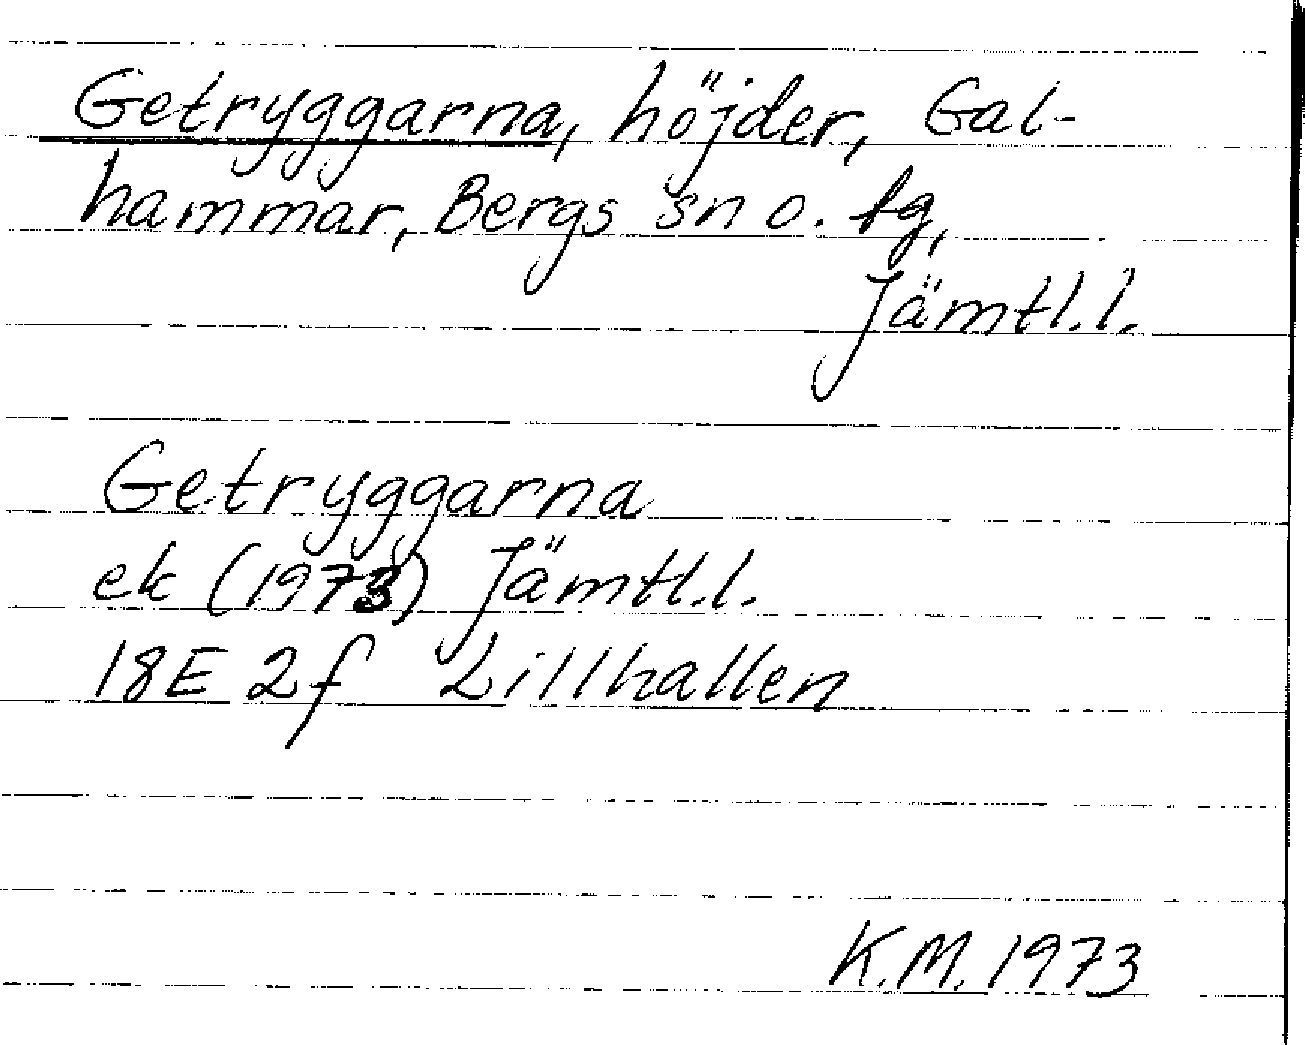 Getryggarna, höjder, Gal-
hammar, Bergs sn o. tg,
Jämtl.l.
Getryggarna
ek (1973) Jämtl.l.
18E 2f Lillhallen
K.M. 1973